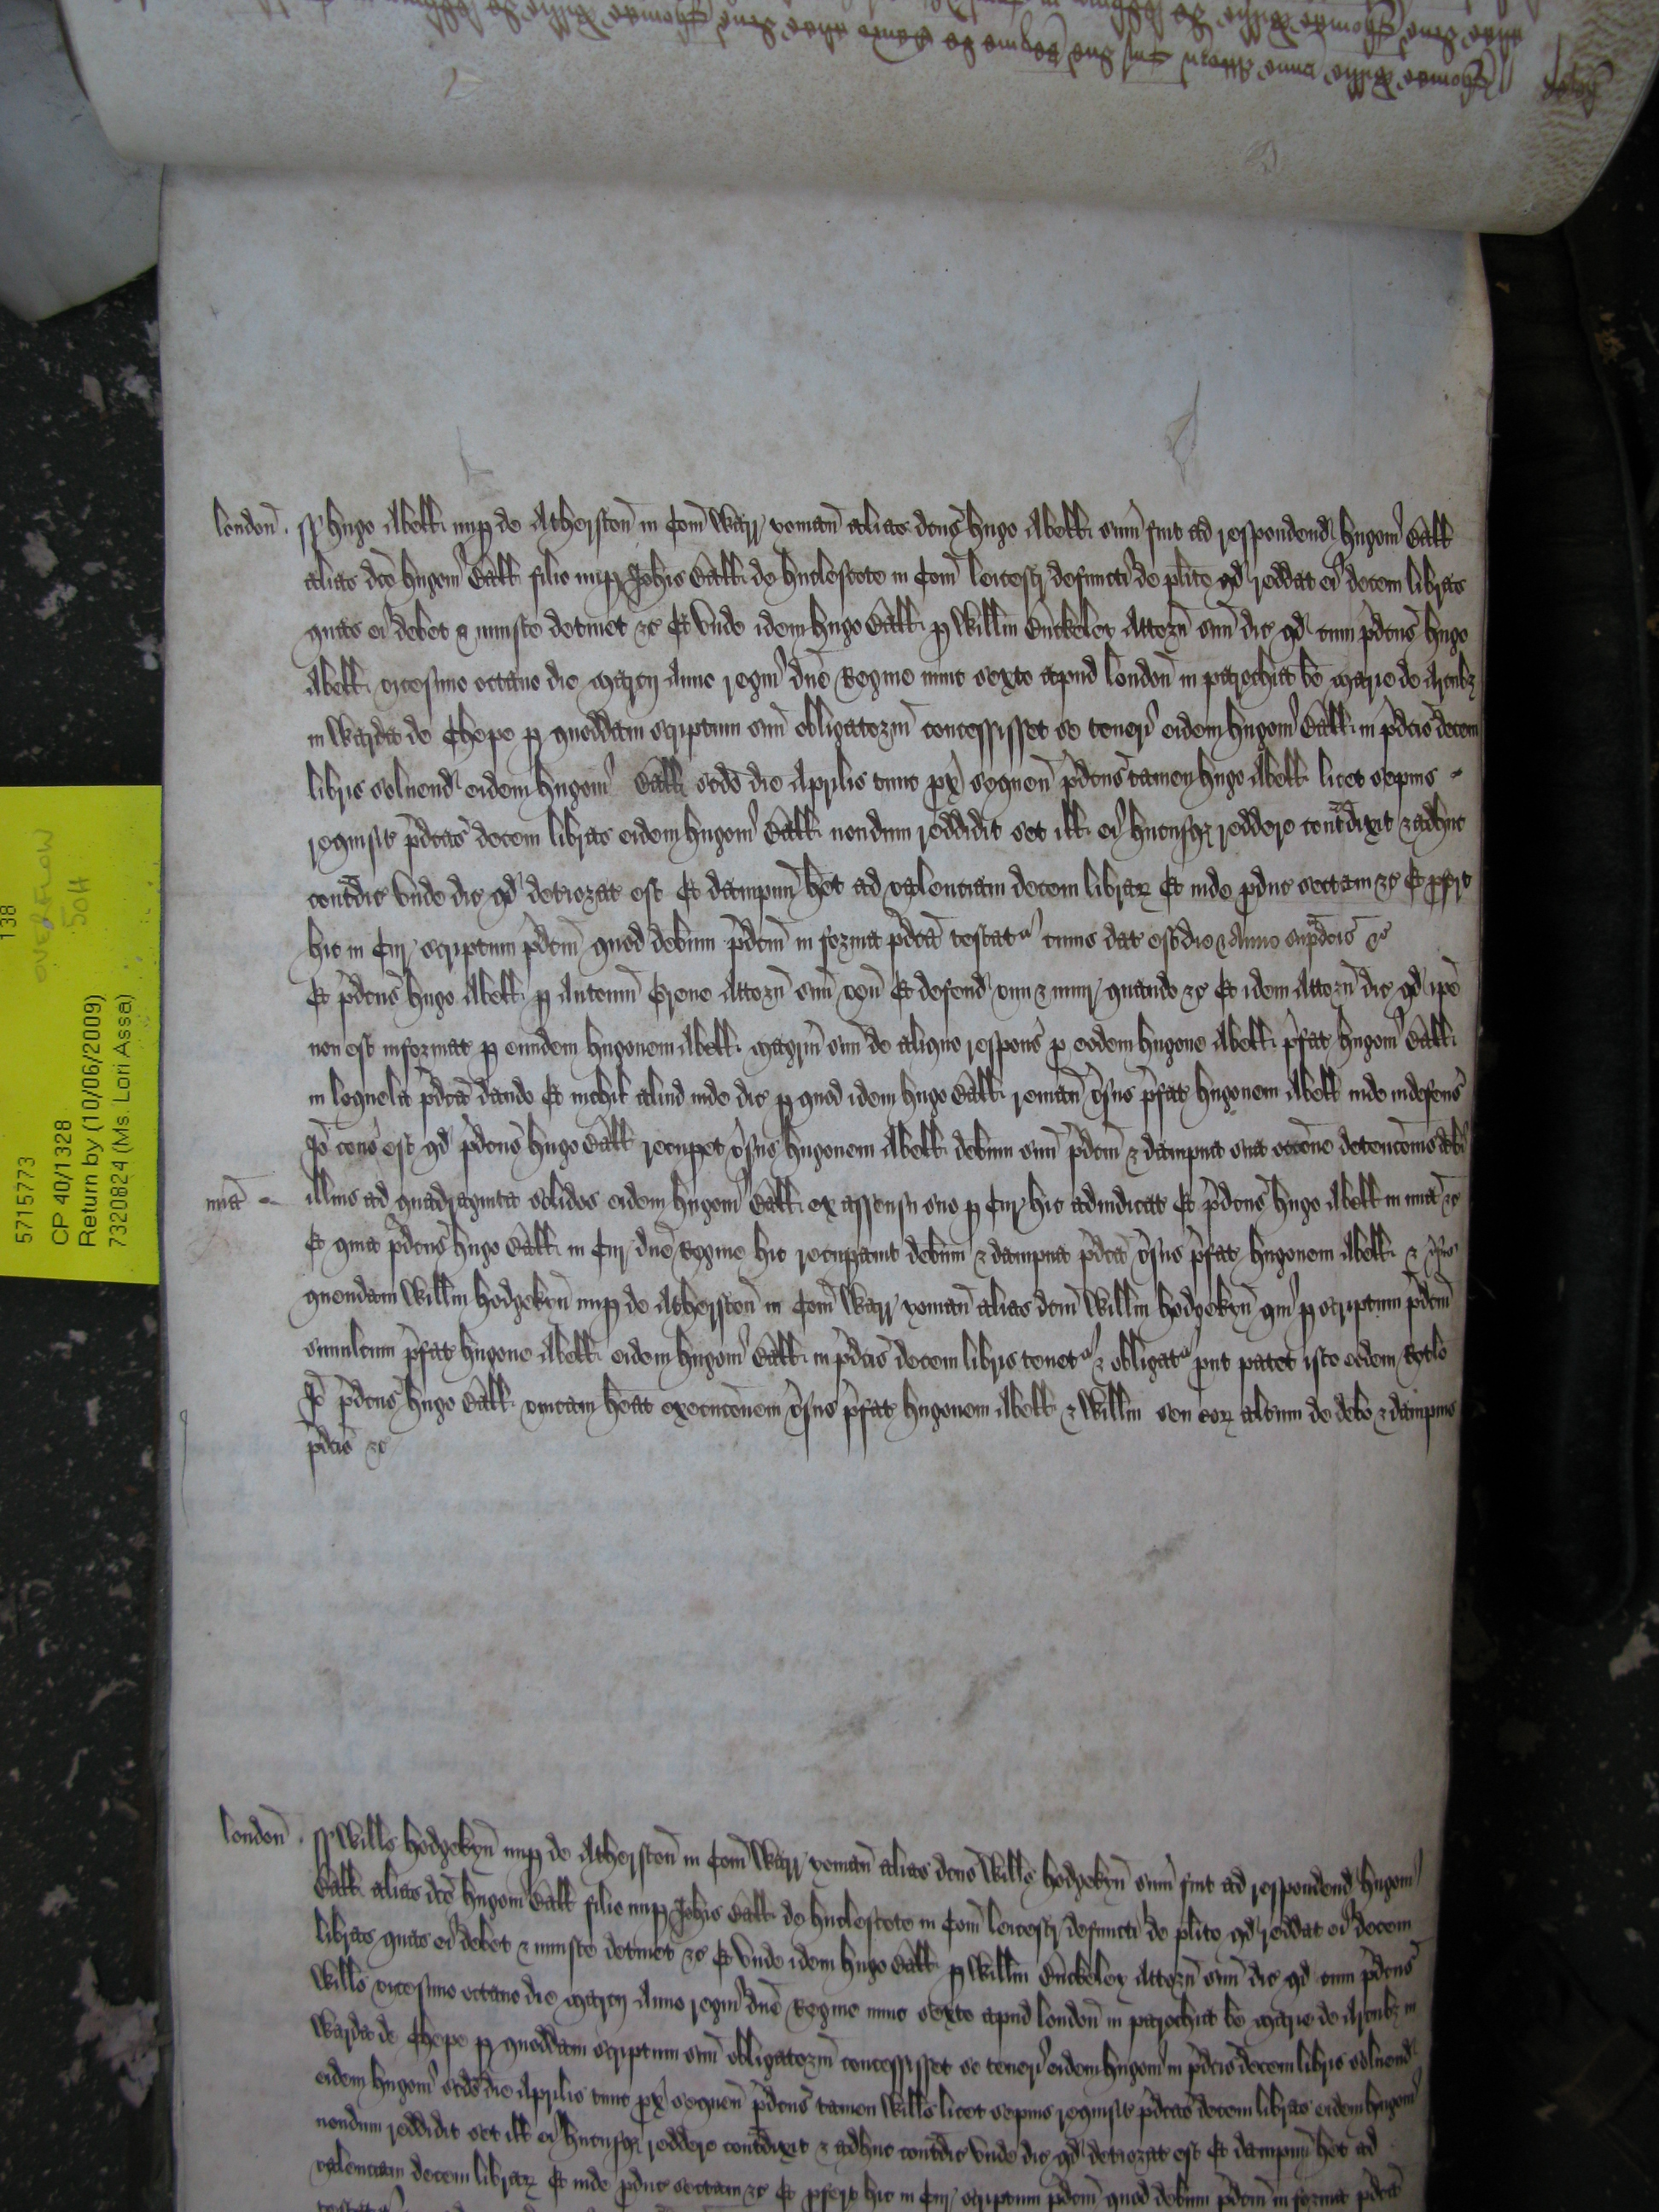 138
OVERFLOW
50H
5715773
CP 40/1328
Return by (10/06/2009)
7320824 (Ms. Lori Assa)
london . ss hugo Abell nup de Atherston in Com Warr yoman alias dcus hugo Abell sum fuit ad respondend hugoni Ball
alias dco hugoni Ball filio nup Johis Ball de huclescote in Com leicestr defuncti de plito qd reddat ei decem libras
quas ei debet & iniuste detinet &c Et unde idem hugo Ball p Willm Attorn suu dic qd cum pdcus hugo
Abell vicesimo octavo die marcij Anno regni dne Regine nunc sexto apud london in parochia be marie de Arcubz
in Warda de Chepe p quoddam scriptum suu obligatoriu concessisset se teneri eidem hugoni Ball in pdcis decem
libris solvend eidem hugoni Ball scdo die Aprilis tunc px sequen pdcus tamen hugo Abell licet sepius
requisit pdcas decem libras eidem hugoni Ball nondum reddidit set ill ei hucusqz reddere contradixit & adhuc
contradic unde dic qd deteriorat est Et dampnu het ad valenciam decem librar Et inde pduc sectam &c Et pfert
hic in Cur scriptum pdcm quod debitum pdcm in forma pdca testatr cuius dat est die & Anno supdcis &c
Et pdcus hugo Abell p Antoniu Attorn suu ven Et defend vim & iniur quando &c Et idem Attorn dic qd ipe
non est informat p eundem hugonem Abell magrm suu de aliquo respons p eodem hugone Abell pfat hugoni Ball
in loquela pdca dando Et nichil aliud inde dic p quod idem hugo Ball reman vsus pfat hugonem Abell inde indefens
Io cons est qd pdcus hugo Ball recupet vsus hugonem Abell debitum suu pdcm & dampna sua occone detencionis debi
mia illius ad quadraginta solidos eidem hugoni Ball ex assensu suo p Cur hic adiudicat Et pdcus hugo Abell in mia &c
Et quia pdcus hugo Ball in Cur dne Regine hic recupavit debitum & dampna pdca vsus pfat hugonem Abell & vsus
quendam Willm hodgekyn nup de Atherston in Com Warr yoman alias dcm Willm hodgekyn qui p scriptum pdcm
simulcum pfat hugone Abell eidem hugoni Ball in pdcis decem libris tenetr & obligatr put patet isto eodem Rotlo
Io pdcus hugo Ball unicam heat execucionem vsus pfat hugonem Abell & Willm seu eor altum de debo & dampnis
pdcis &c
london . ss Wills hodgekyn nup de Atherston in Com Warr yoman alias dcus Wills hodgekyn sum fuit ad respondend hugoni
Ball alias dco hugoni Ball filio nup Johis Ball de huclescote in Com leicestr defuncti de plito qd reddat ei decem
libras quas ei debet & iniuste detinet &c Et unde idem hugo Ball p Willm Attorn suu dic qd cum pdcus
Wills vicesimo octavo die marcij Anno regni dne Regine nunc sexto apud london in parochia be marie de Arcubz in
Warda de Chepe p quoddam scriptum suu obligatoriu concessisset se teneri eidem hugoni in pdcis decem libris solvend
eidem hugoni scdo die Aprilis tunc px sequen pdcus tamen Wills licet sepius requisit pdcas decem libras eidem hugoni
nondum reddidit set ill ei hucusqz reddere contradixit & adhuc contradic unde dic qd deteriorat est Et dampnu het ad
valenciam decem librar Et inde pduc sectam &c Et pfert hic in Cur scriptum pdcm quod debitum pdcm in forma pdca